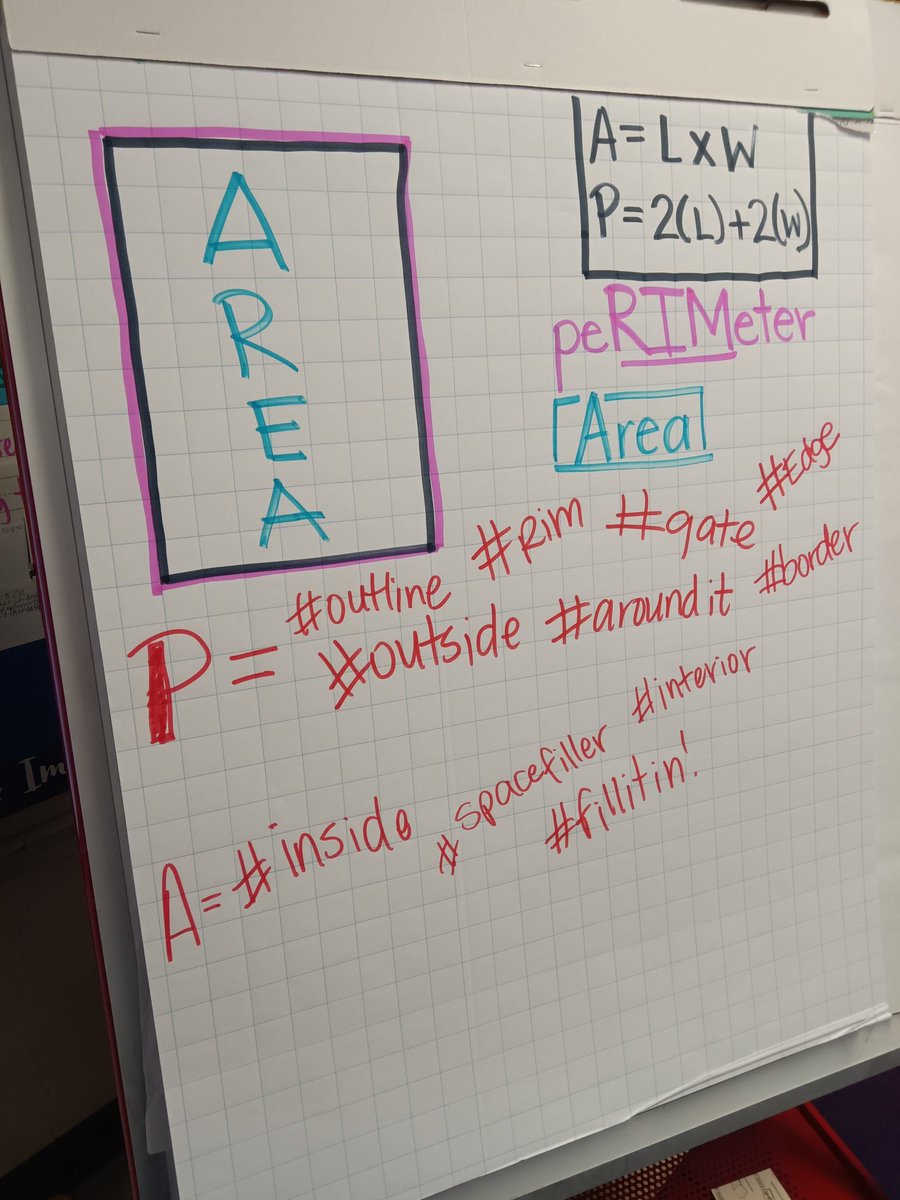 A
R
E
A
A=LxW
P=2(L)+2(W)
peRIMeter
Area
P= #outline #Rim #gate #Edge
#outside #aroundit #border
A= #inside #spacefiller #interior
#fillitin!
Im